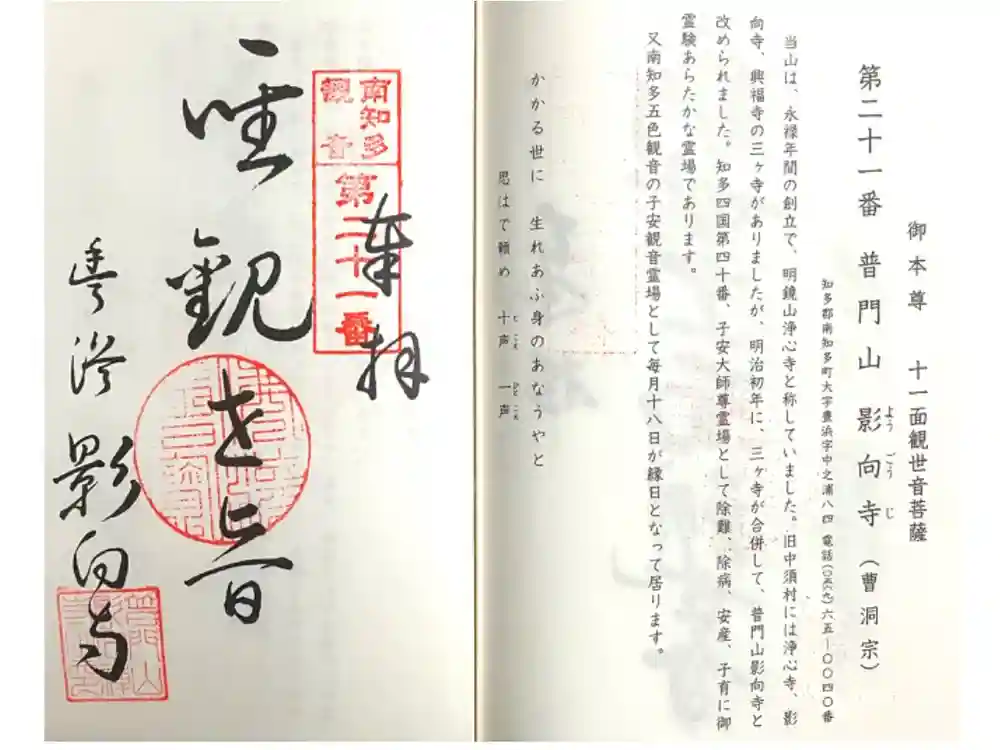 御本尊 十一面観世音菩薩
第二十一番 普門山 影向寺（曹洞宗）
よう ごう じ
知多郡南知多町大字豊浜字中之浦八四 電話（〇五六九）六五―〇〇四〇番
当山は、永禄年間の創立で、明鏡山浄心寺と称していました。旧中須村には浄心寺、影
向寺、興福寺の三ヶ寺がありましたが、明治初年に、三ヶ寺が合併して、普門山影向寺と
改められました。知多四国第四十番、子安大師尊霊場として除難、除病、安産、子育に御
霊験あらたかな霊場であります。
又南知多五色観音の子安観音霊場として毎月十八日が縁日となって居ります。
かかる世に 生れあふ身のあなうやと
思はで頼め 十声 一声
とこえ ひとこえ
奉拝
南知多
観音
第二十一番
聖観世音
豊浜 影向寺